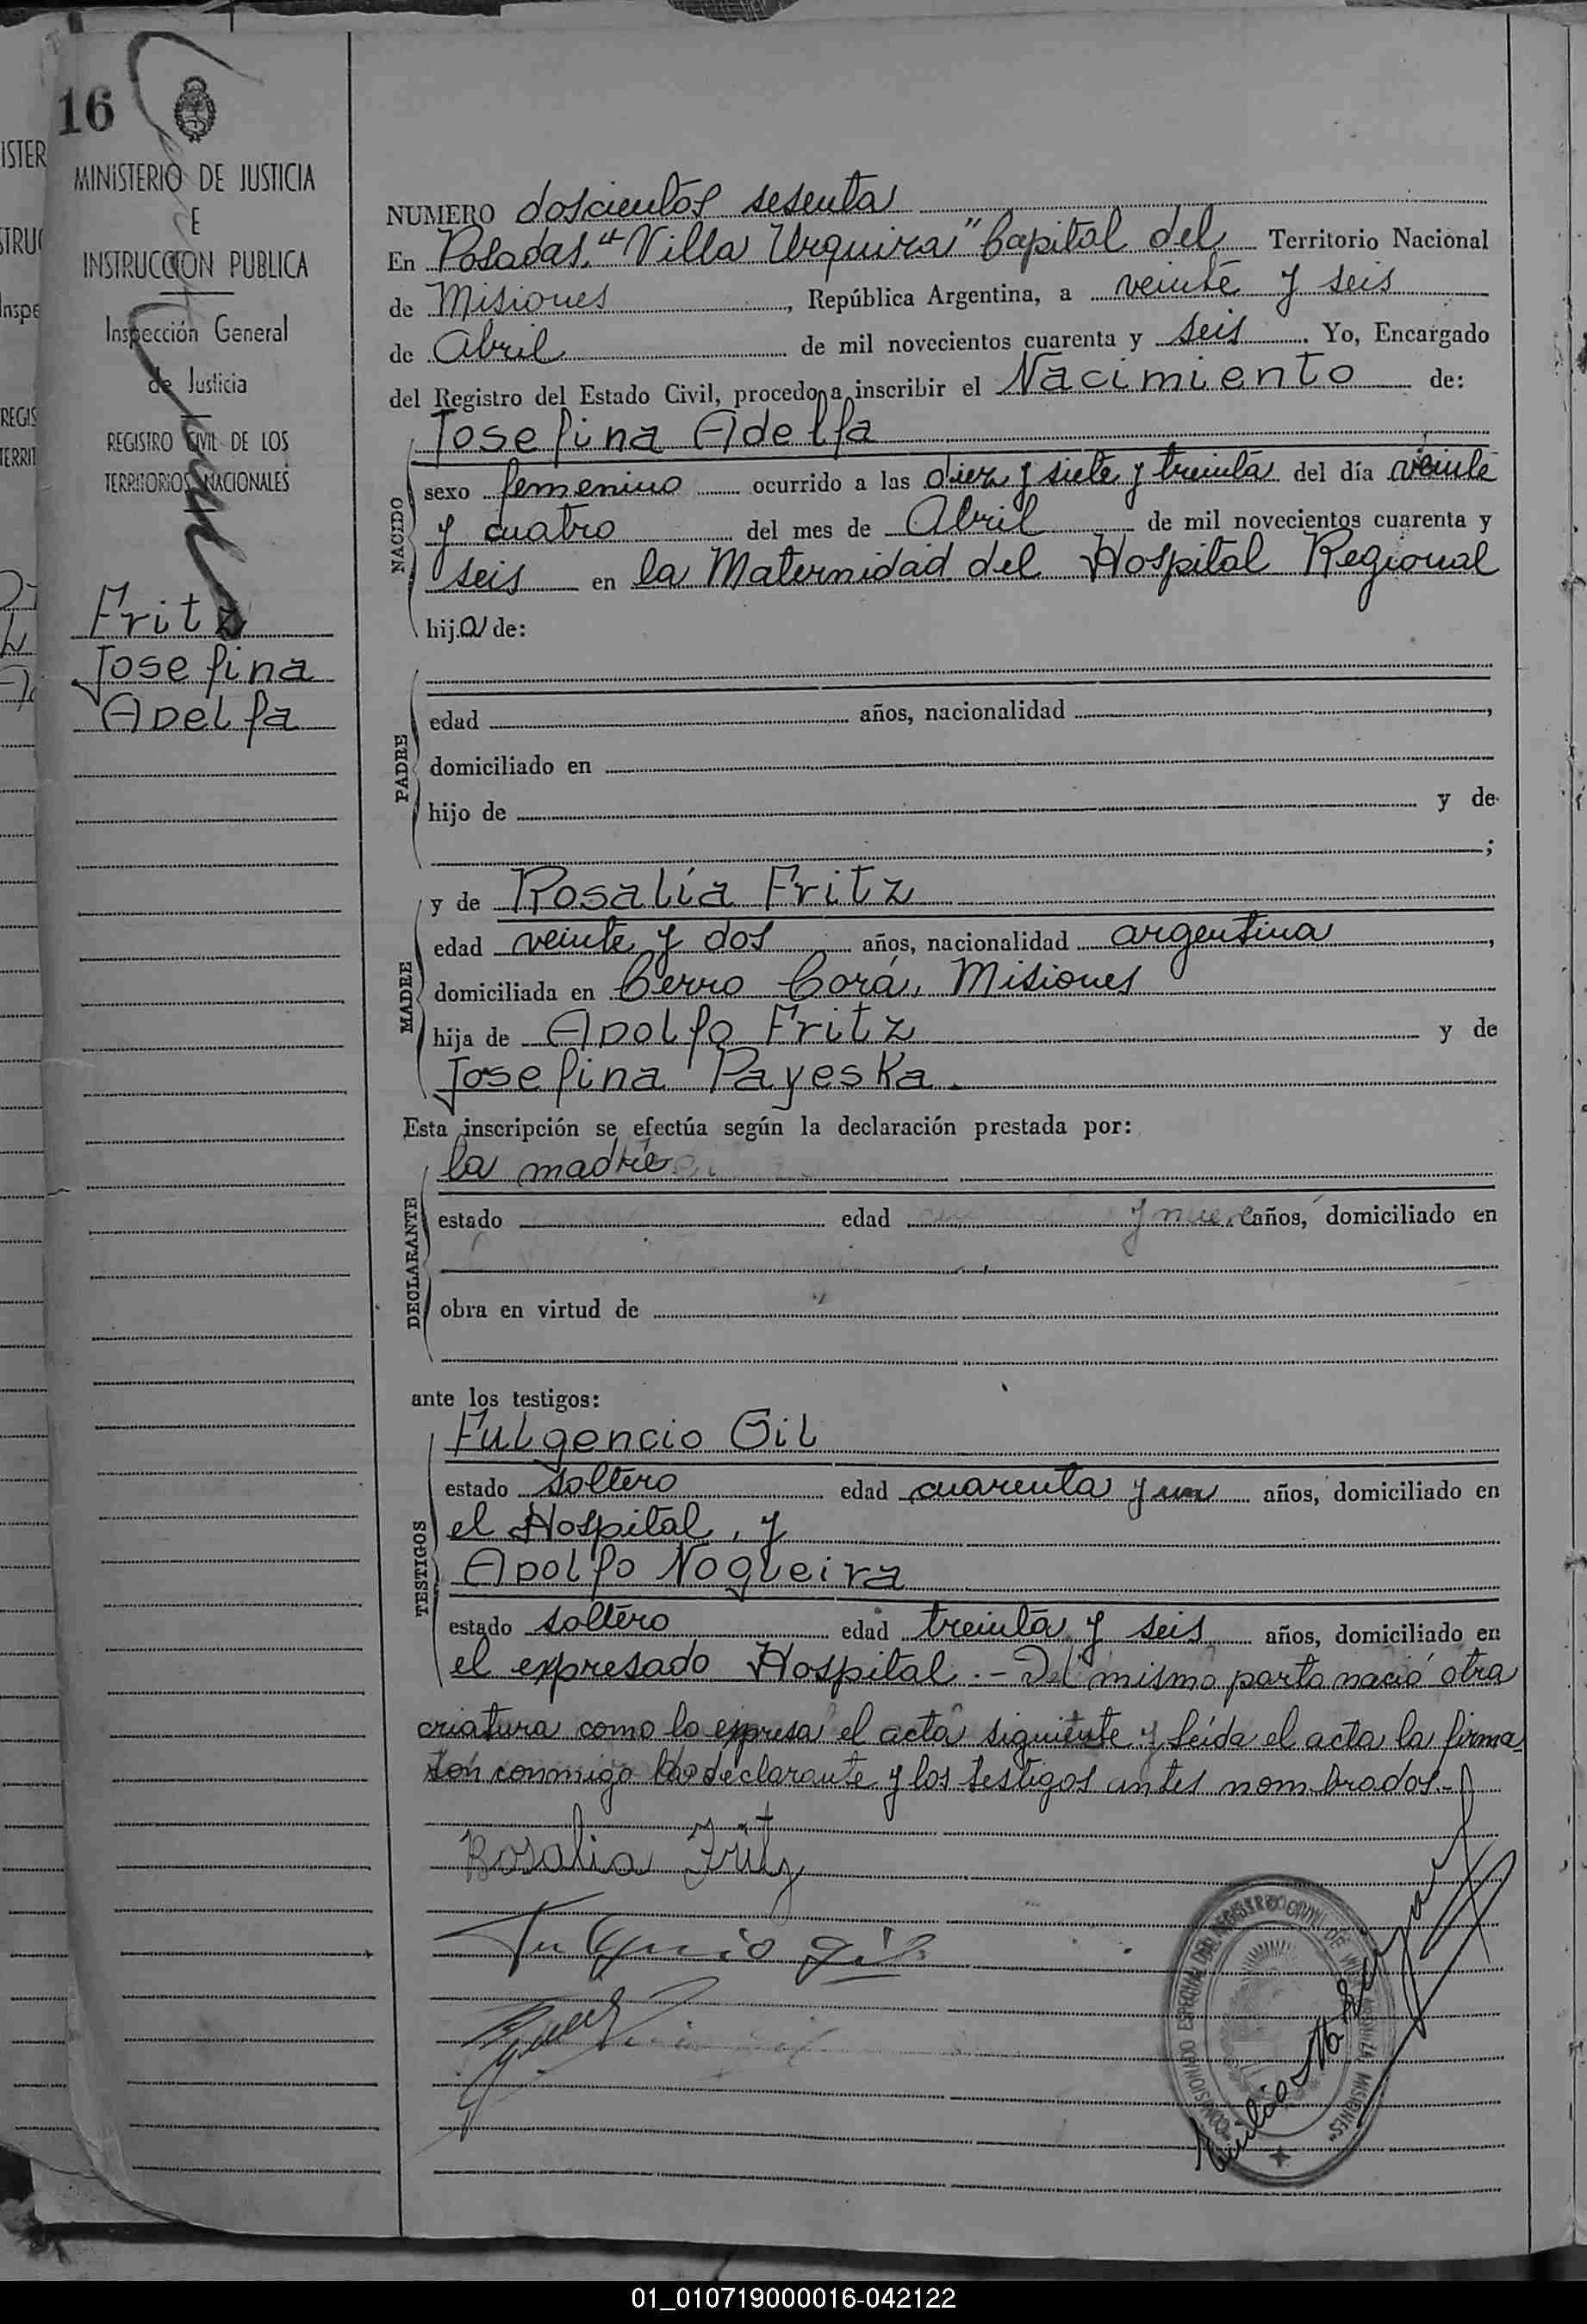 16
MINISTERIO DE JUSTICIA
E
INSTRUCCION PUBLICA
Inspección General
de Justicia
REGISTRO CIVIL DE LOS
TERRITORIOS NACIONALES
Fritz
Josefina
Adelfa
NUMERO doscientos sesenta
En Posadas, "Villa Urquiza" Capital del Territorio Nacional
de Misiones, República Argentina, a veinte y seis
de Abril de mil novecientos cuarenta y seis. Yo, Encargado
del Registro del Estado Civil, procedo a inscribir el Nacimiento de:
Josefina Adelfa
NACIDO
sexo femenino ocurrido a las diez y siete y treinta del día veinte
y cuatro del mes de Abril de mil novecientos cuarenta y
seis en la Maternidad del Hospital Regional
hija de:
PADRE
edad años, nacionalidad,
domiciliado en
hijo de y de
;
MADRE
y de Rosalía Fritz
edad veinte y dos años, nacionalidad argentina,
domiciliada en Cerro Corá, Misiones
hija de Adolfo Fritz y de
Josefina Payeska.
Esta inscripción se efectúa según la declaración prestada por:
DECLARANTE
la madre
estado edad años, domiciliado en
obra en virtud de
ante los testigos:
TESTIGOS
Fulgencio Gil
estado soltero edad cuarenta y un años, domiciliado en
el Hospital, y
Adolfo Nogueira
estado soltero edad treinta y seis años, domiciliado en
el expresado Hospital.- Del mismo parto nació otra
criatura como lo expresa el acta siguiente y leída el acta la firma
ron conmigo la declarante y los testigos antes nombrados.-
Rosalia Fritz
Fulgencio Gil
01_010719000016-042122